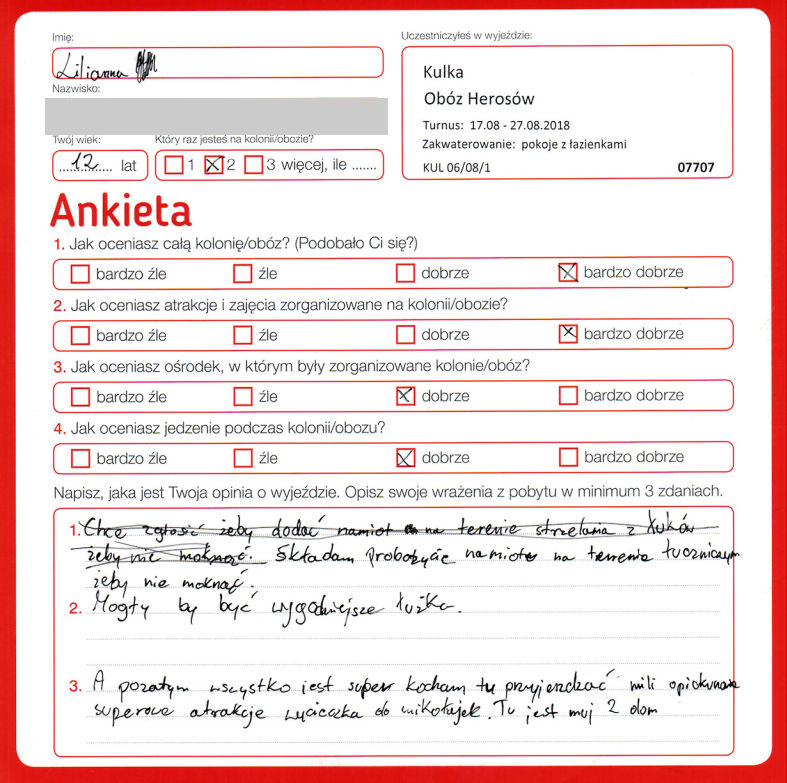 Imię:
Uczestniczyłeś w wyjeździe:
Lilianna
Kulka
Nazwisko:
Obóz Herosów
Turnus: 17.08 - 27.08.2018
Twój wiek: Który raz jesteś na kolonii/obozie?
Zakwaterowanie: pokoje z łazienkami
12 lat 1 2 3 więcej, ile .......
KUL 06/08/1 07707
Ankieta
1. Jak oceniasz całą kolonię/obóz? (Podobało Ci się?)
bardzo źle źle dobrze bardzo dobrze
2. Jak oceniasz atrakcje i zajęcia zorganizowane na kolonii/obozie?
bardzo źle źle dobrze bardzo dobrze
3. Jak oceniasz ośrodek, w którym były zorganizowane kolonie/obóz?
bardzo źle źle dobrze bardzo dobrze
4. Jak oceniasz jedzenie podczas kolonii/obozu?
bardzo źle źle dobrze bardzo dobrze
Napisz, jaka jest Twoja opinia o wyjeździe. Opisz swoje wrażenia z pobytu w minimum 3 zdaniach.
1. Chcę zgłosić żeby dodać namiot na terenie strzelania z łuków
żeby nie moknąć. Składam namiot na terenie łuczniczym
żeby nie moknąć.
2. Mogły by być wygodniejsze łużka.
3. A pozatym wszystko jest super kocham tu przyjerzdzać mili
superowe atrakcje wycieczka do mikołajek. Tu jest muj 2 dom